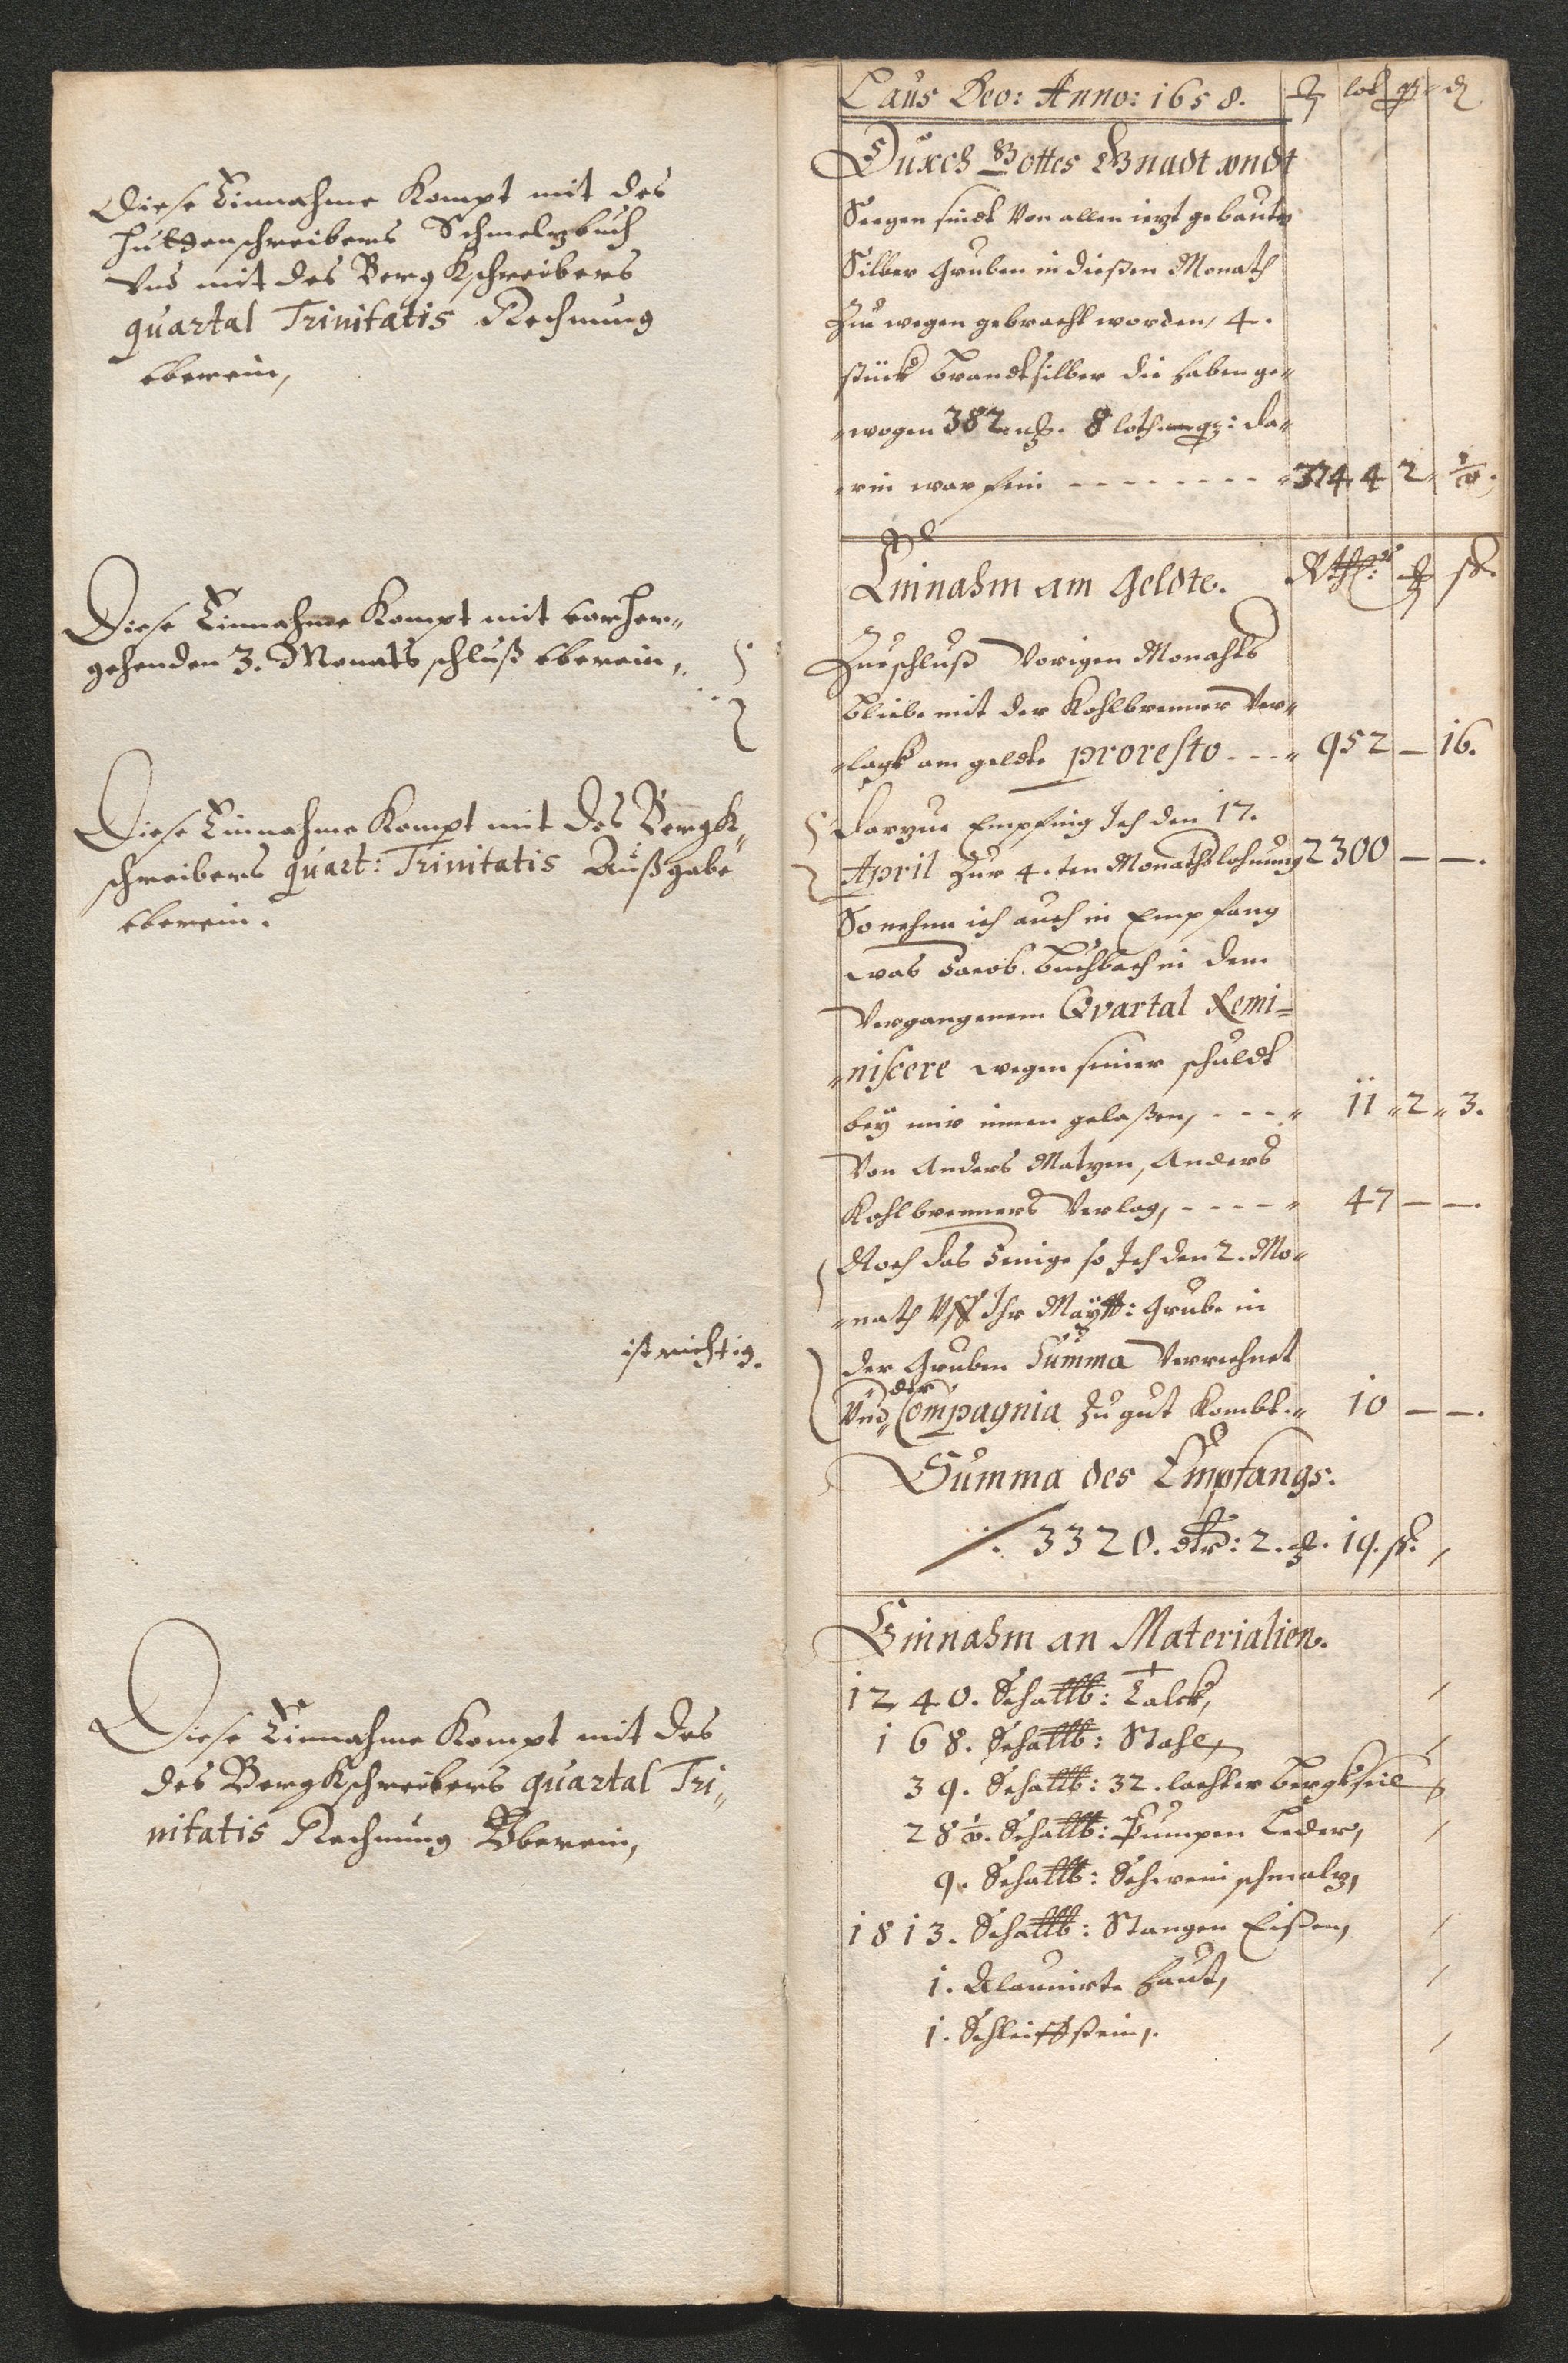 Diese Einnahme Kompt mit des
hüttenschreibers Schmeltzbuch
Vnd mit des Bergkschreibers
quartal Trinitatis Rechnung
vberein,
Diese Einnahme Kompt mit vorher„
gehenden 3. Monats schluß vberein,
Diese Einnahme Kompt mit des Bergk„
schreibers quart: Trinitatis Außgabe
vberein.
ist richtig.
Diese Einnahme Kompt mit des
des Bergkschreibers quartal Tri„
nitatis Rechnung Vberein,
Laus Deo: Anno: 1658. lot q
Durch Gottes Gnadt vndt
Seegen sindt Von allen ietzt gebauten
Silber Gruben in dießen Monath
Zu wegen gebracht worden, 4.
stück brandtsilber die haben ge„
„wogen 382 8 loth. da„
„rin war fein 374 4 2
Einnahm am Geldte. Rthlr:
Zueschluß Vorigen Monahts
bliebe mit der Kohlbrenner Ver„
„lagk am geldte proresto 952 — 16.
Darzue Empfing Ich den 17.
April Zur 4.ten Monathslohnung 2300 — —.
So nehme ich auch in Empfang
was Jacob Buchbach in dem
Vergangenem Qvartal Remi=
„niscere wegen seiner schuldt
bey mir innen gelaßen, 11 „ 2 „ 3.
Von Anders Matzen, Anders
Kohlbrenners Verlag, 47 — —.
Noch das Jenige so Ich den 2. Mo„
„nath Vff Ihr Maytt: Grube in
der Gruben Summa Verrechnet
Vnd der Compagnia Zu gut Kombt. 10 — —.
Summa des Empfangs:
3320. dlr: 2. 19.
Einnahm an Materialien.
1240. Schallb: Talck,
168. Schallb: Stahl,
39. Schallb: 32. lachter bergkseil
28 ½. Schallb: Pumpen Leder,
9. Schallb: Schwein schmaltz,
1813. Schallb: Stangen Eißen,
1. Alaunirte haut,
1. Schleiffstein,.